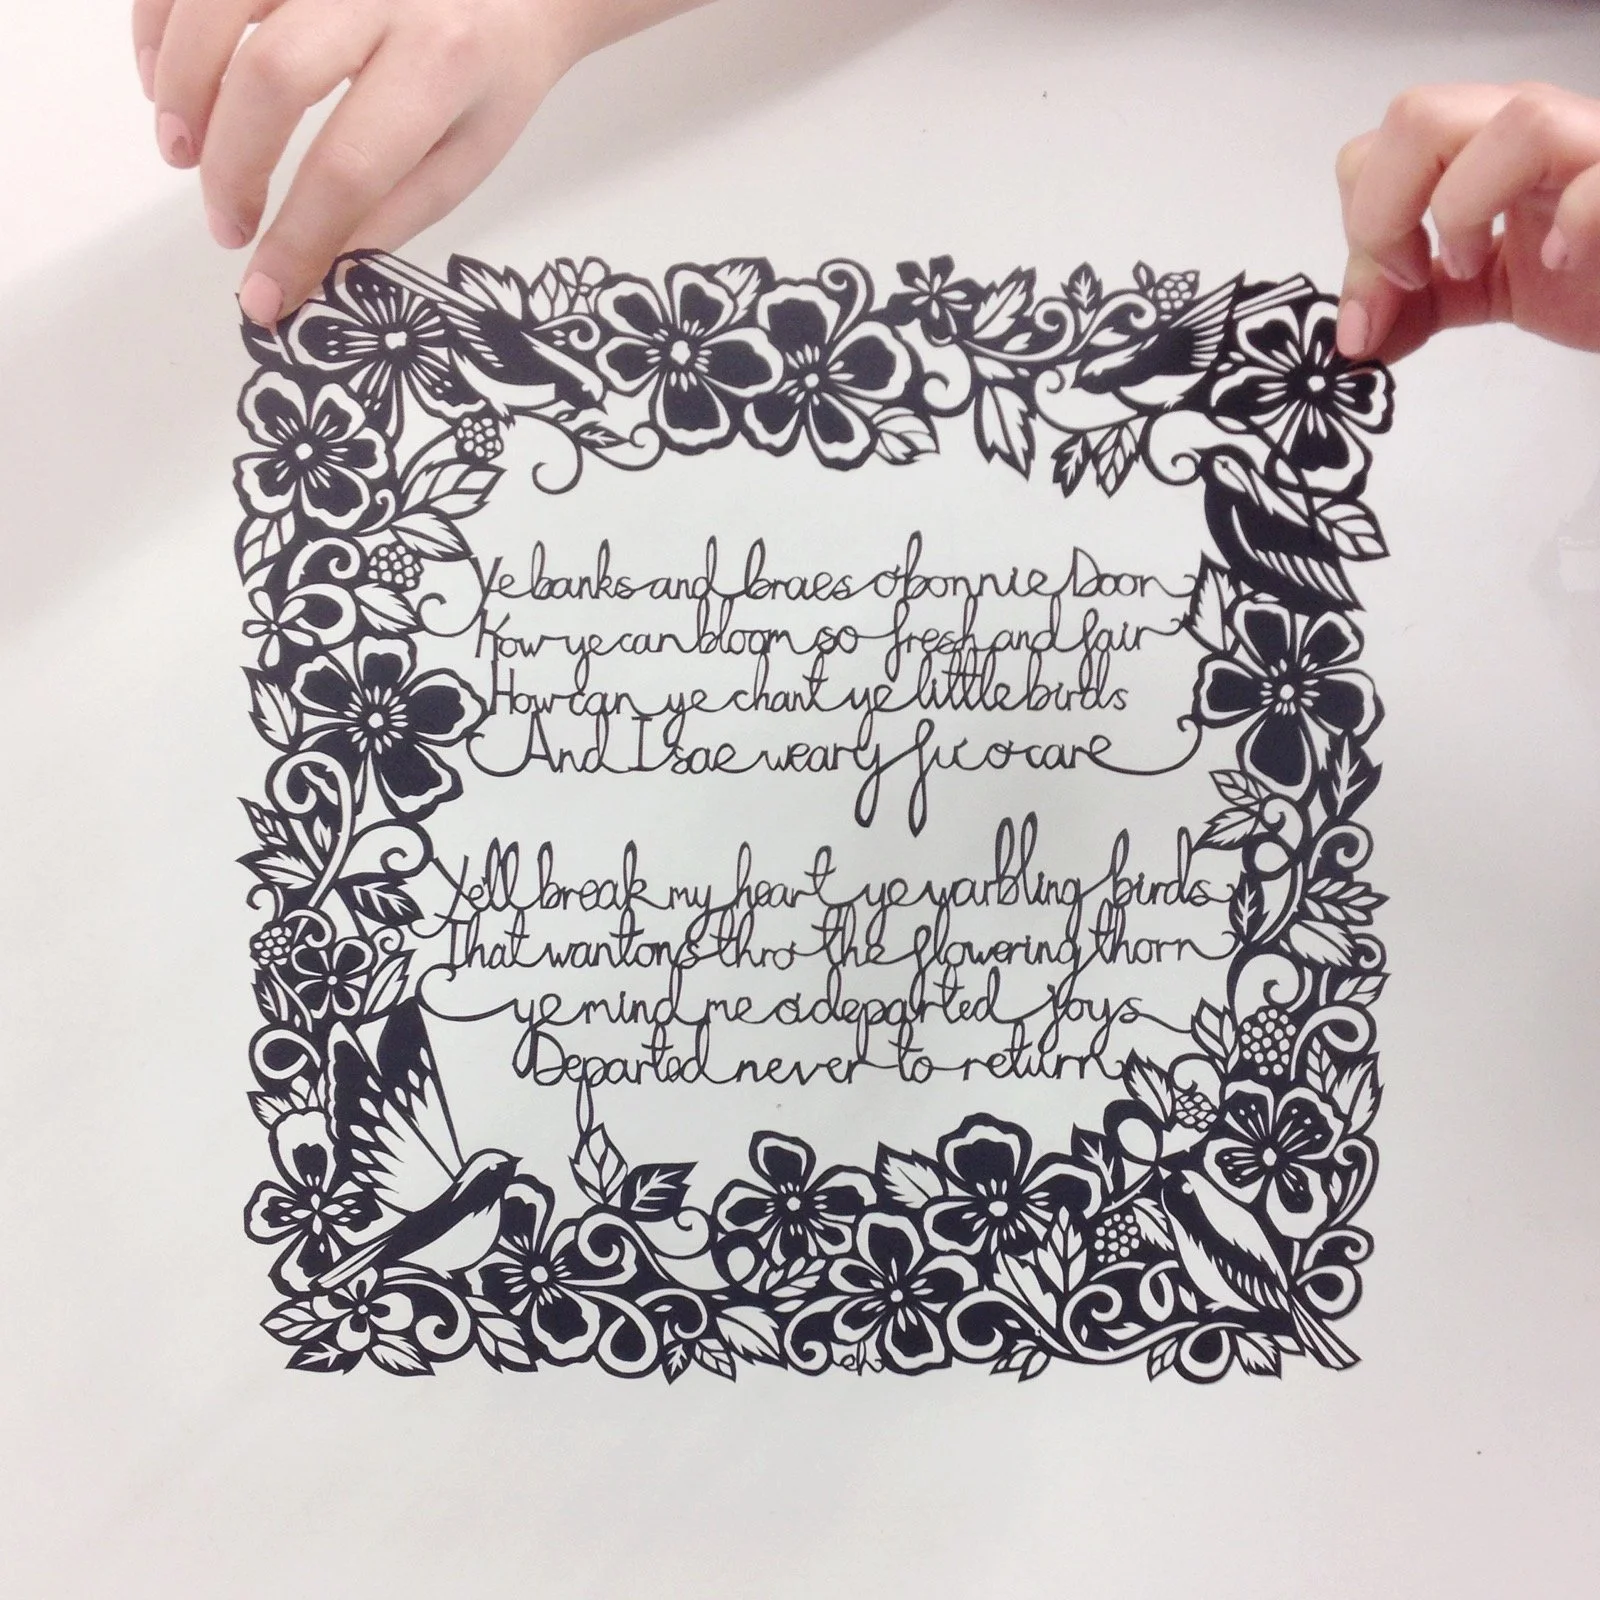 Ye banks and braes o' bonnie Doon
How ye can bloom so fresh and fair
How can ye chant ye little birds
And I sae weary fu' o' care
Ye'll break my heart ye warbling birds
That wantons thro' the flowering thorn
ye mind me o' departed joys
Departed never to return
eh